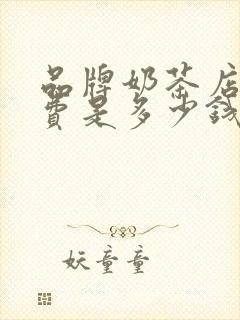 品牌奶茶店
費是多少錢
妖童童